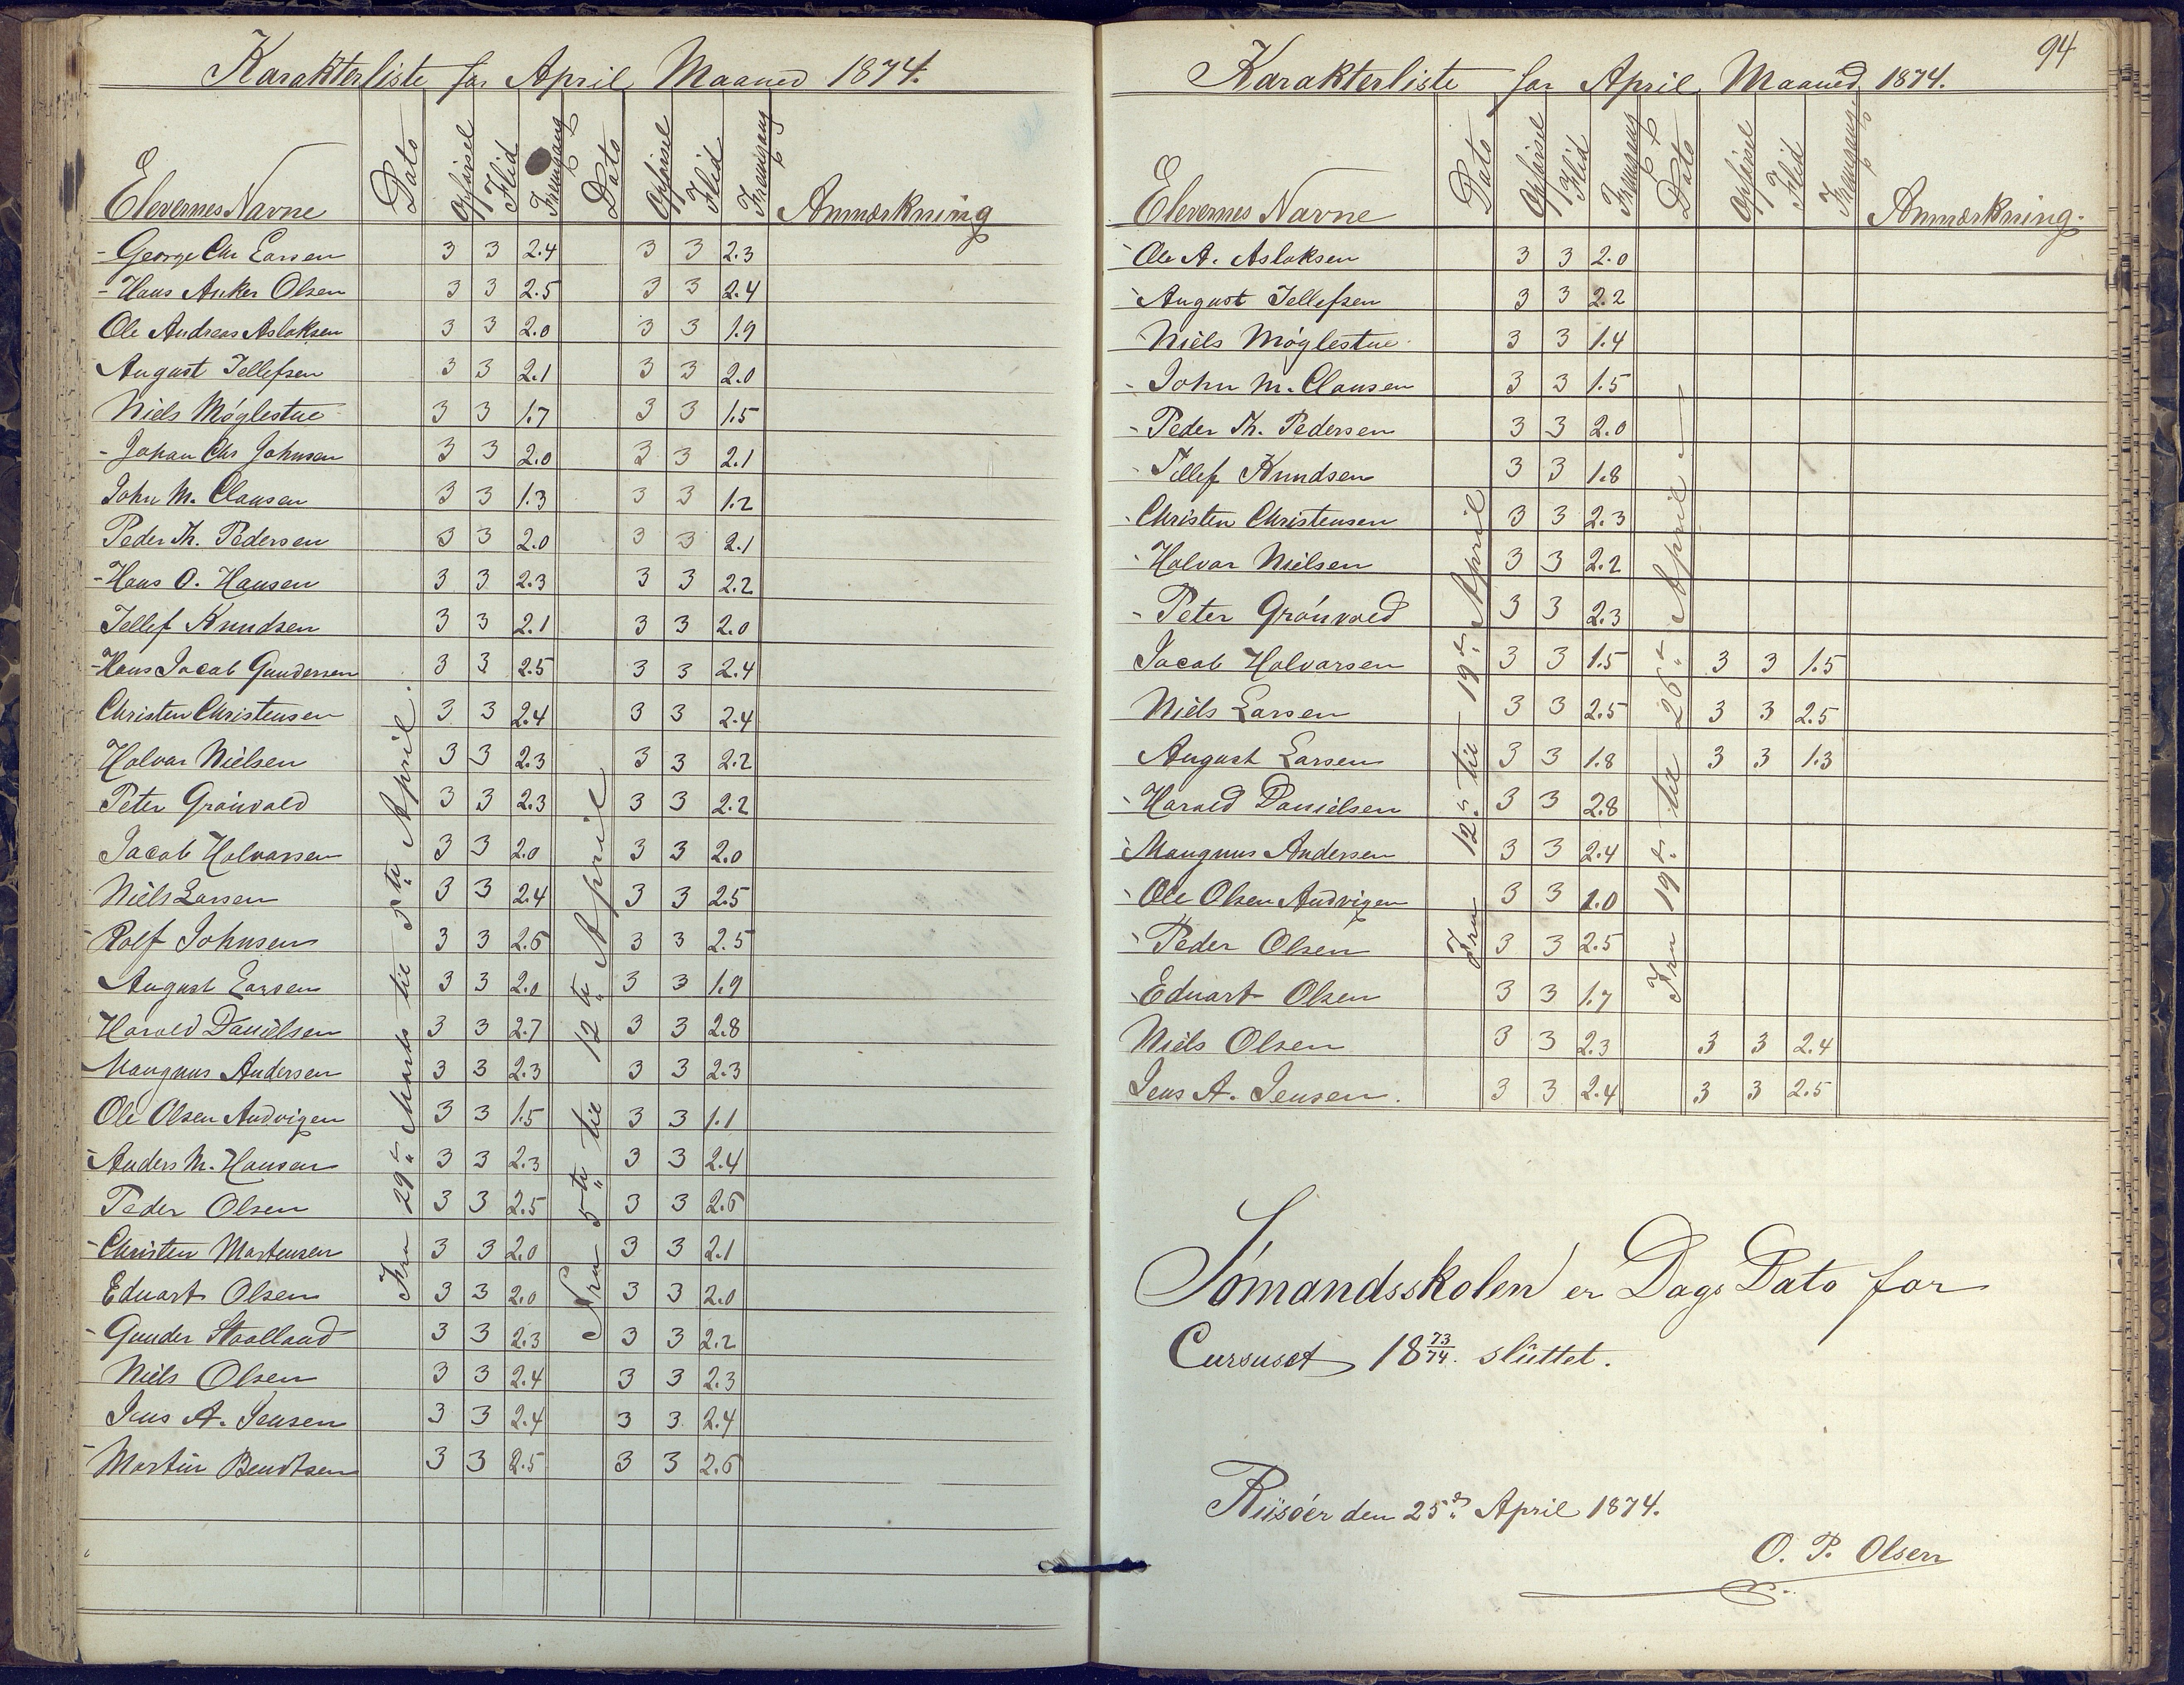 Karakterliste for April Maaned 1874.
Elevernes Navne Dato Opførsel Flid Fremgang Dato Opførsel Flid Fremgang Anmærkning
Fra 29de Marts til 5te April.
Fra 5te til 12te April
- George Chr Larsen 3 3 2.4 3 3 2.3
- Hans Anker Olsen 3 3 2.5 3 3 2.4
Ole Andreas Aslaksen 3 3 2.0 3 3 1.9
August Tellefsen 3 3 2.1 3 3 2.0
Niels Møglestue 3 3 1.7 3 3 1.5
- Johan Chr Johnsen 3 3 2.0 3 3 2.1
John M. Clausen 3 3 1.3 3 3 1.2
Peder Th. Pedersen 3 3 2.0 3 3 2.1
- Hans O. Hansen 3 3 2.3 3 3 2.2
Tellef Knudsen 3 3 2.1 3 3 2.0
- Hans Jacob Gundersen 3 3 2.5 3 3 2.4
Christen Christensen 3 3 2.4 3 3 2.4
Halvar Nielsen 3 3 2.3 3 3 2.2
Peter Grønvold 3 3 2.3 3 3 2.2
Jacob Halvarsen 3 3 2.0 3 3 2.0
Niels Larsen 3 3 2.4 3 3 2.5
- Rolf Johnsen 3 3 2.6 3 3 2.5
August Larsen 3 3 2.0 3 3 1.9
Harald Danielsen 3 3 2.7 3 3 2.8
Maugnus Andersen 3 3 2.3 3 3 2.3
Ole Olsen Audvigen 3 3 1.5 3 3 1.1
- Anders M. Hansen 3 3 2.3 3 3 2.4
Peder Olsen 3 3 2.5 3 3 2.6
- Christen Mortensen 3 3 2.0 3 3 2.1
Eduart Olsen 3 3 2.0 3 3 2.0
- Gunder Staalland 3 3 2.3 3 3 2.2
Niels Olsen 3 3 2.4 3 3 2.3
Jens A. Jensen 3 3 2.4 3 3 2.4
- Martin Bendtsen 3 3 2.5 3 3 2.6
94
Karakterliste for April Maaned 1874.
Elevernes Navne Dato Opførsel Flid Fremgang Dato Opførsel Flid Fremgang Anmærkning.
Fra 12te til 19de April
Fra 19de til 26de April
- Ole A. Aslaksen 3 3 2.0
- August Tellefsen 3 3 2.2
- Niels Møglestue 3 3 1.4
- John M. Clausen 3 3 1.5
- Peder Th. Pedersen 3 3 2.0
- Tellef Knudsen 3 3 1.8
- Christen Christensen 3 3 2.3
- Halvar Nielsen 3 3 2.2
- Peter Grønvold 3 3 2.3
Jacob Halvarsen 3 3 1.5 3 3 1.5
Niels Larsen 3 3 2.5 3 3 2.5
August Larsen 3 3 1.8 3 3 1.3
- Harald Danielsen 3 3 2.8
- Maugnus Andersen 3 3 2.4
- Ole Olsen Audvigen 3 3 1.0
- Peder Olsen 3 3 2.5
- Eduart Olsen 3 3 1.7
Niels Olsen 3 3 2.3 3 3 2.4
Jens A. Jensen. 3 3 2.4 3 3 2.5
Sømandsskolen er Dags Dato for
Cursuset 18 73/74. sluttet.
Riisøer den 25de April 1874.
O. P. Olsen